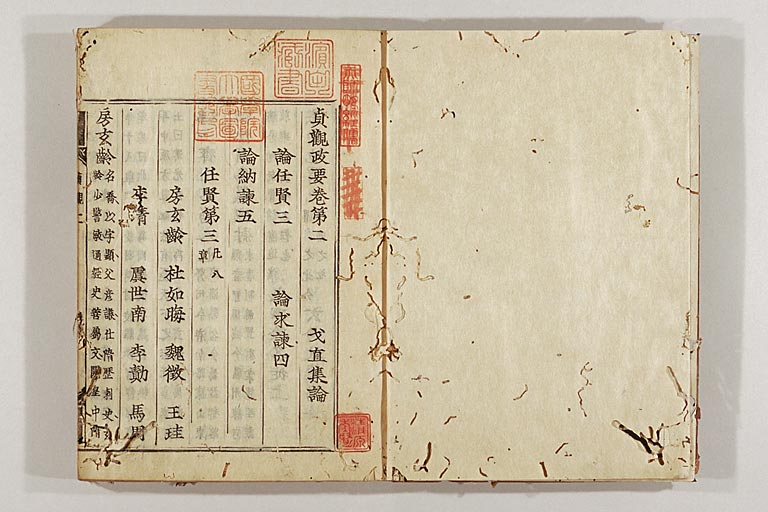 貞觀政要卷第二
戈直集論
論任賢三
論求諫四
論納諫五
任賢第三
凡八章
房玄齡 杜如晦 魏徵 王珪
李靖 虞世南 李勣 馬周
房玄齡
名喬以字顯父彦謙仕隋歷刺史玄
齡少警敏通經史善屬文開皇中